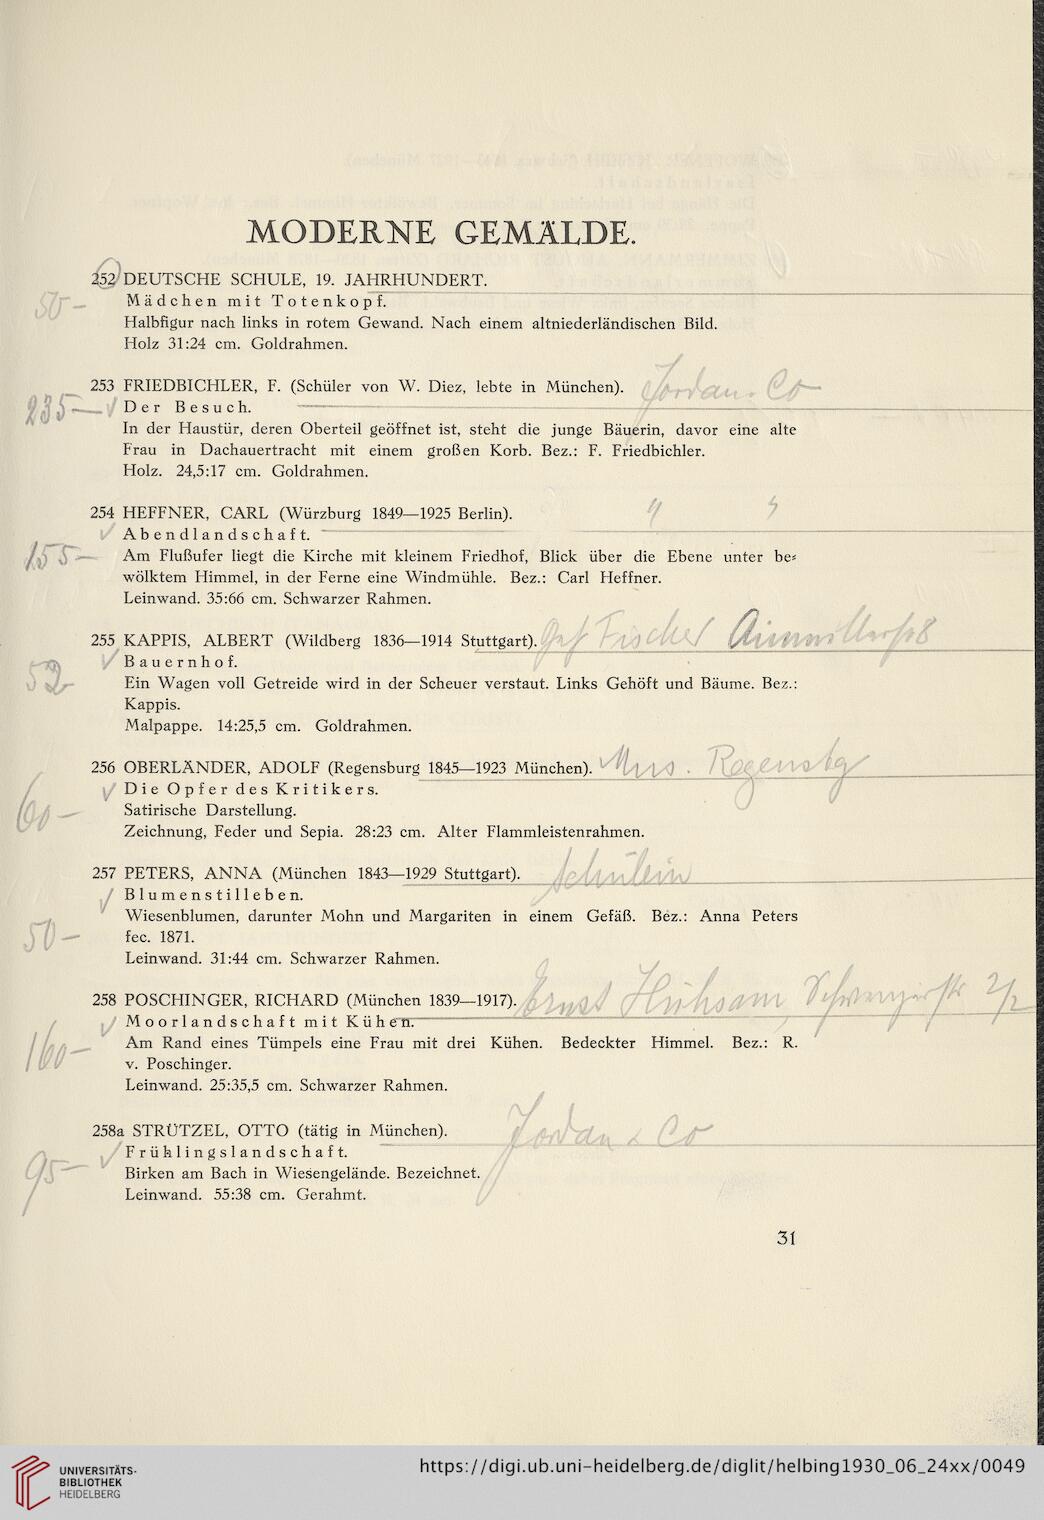 MODERNE GEMÄLDE.
252 DEUTSCHE SCHULE, 19. JAHRHUNDERT.
50- Mädchen mit Totenkopf.
Halbfigur nach links in rotem Gewand. Nach einem altniederländischen Bild.
Holz 31:24 cm. Goldrahmen.
253 FRIEDBICHLER, F. (Schüler von W. Diez, lebte in München). Jordan & Co
235- Der Besuch.
In der Haustür, deren Oberteil geöffnet ist, steht die junge Bäuerin, davor eine alte
Frau in Dachauertracht mit einem großen Korb. Bez.: F. Friedbichler.
Holz. 24,5:17 cm. Goldrahmen.
254 HEFFNER, CARL (Würzburg 1849—1925 Berlin). " "
Abendlandschaft.
155- Am Flußufer liegt die Kirche mit kleinem Friedhof, Blick über die Ebene unter be-
wölktem Himmel, in der Ferne eine Windmühle. Bez.: Carl Heffner.
Leinwand. 35:66 cm. Schwarzer Rahmen.
255 KAPPIS, ALBERT (Wildberg 1836—1914 Stuttgart). Fischer
Bauernhof.
52- Ein Wagen voll Getreide wird in der Scheuer verstaut. Links Gehöft und Bäume. Bez.:
Kappis.
Malpappe. 14:25,5 cm. Goldrahmen.
256 OBERLÄNDER, ADOLF (Regensburg 1845—1923 München). Mus. Regensbg
Die Opfer des Kritikers.
60- Satirische Darstellung.
Zeichnung, Feder und Sepia. 28:23 cm. Alter Flammleistenrahmen.
257 PETERS, ANNA (München 1843—1929 Stuttgart). Schülein
Blumenstilleben.
Wiesenblumen, darunter Mohn und Margariten in einem Gefäß. Bez.: Anna Peters
50- fec. 1871.
Leinwand. 31:44 cm. Schwarzer Rahmen.
258 POSCHINGER, RICHARD (München 1839—1917). Ernst Hühsam,
Moorlandschaft mit Kühen.
160- Am Rand eines Tümpels eine Frau mit drei Kühen. Bedeckter Himmel. Bez.: R.
v. Poschinger.
Leinwand. 25:35,5 cm. Schwarzer Rahmen.
258a STRÜTZEL, OTTO (tätig in München). Jordan & Co
Frühlingslandschaft.
95- Birken am Bach in Wiesengelände. Bezeichnet.
Leinwand. 55:38 cm. Gerahmt.
31
UNIVERSITÄTS-
BIBLIOTHEK
HEIDELBERG
https://digi.ub.uni-heidelberg.de/diglit/helbing1930_06_24xx/0049